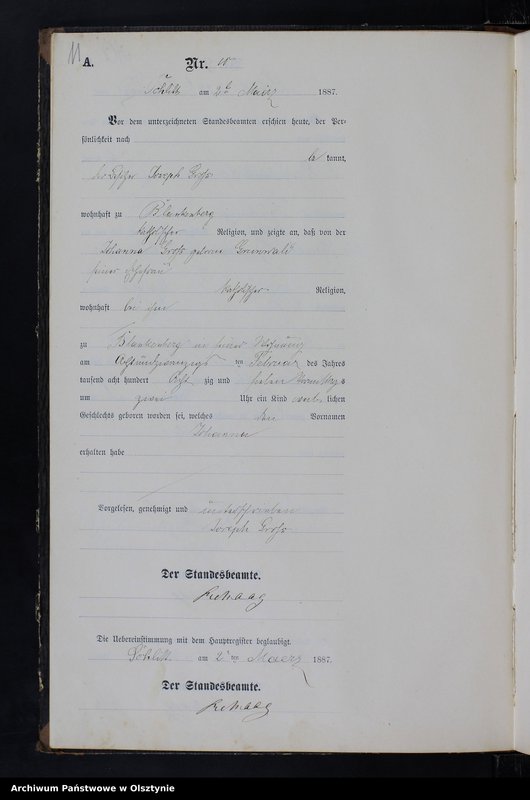 11
A.
Nr.
am 2ten Maerz 1887.
Vor dem unterzeichneten Standesbeamten erschien heute, der Per-
sönlichkeit nach
be kannt,
Joseph Groß
wohnhaft zu Blankenberg
katholischer Religion, und zeigte an, daß von der
Johanna Groß geborene Grunwald
seiner Ehefrau
katholischer Religion,
wohnhaft bei ihm
zu Blankenberg in seiner Wohnung
am Achtundzwanzigsten Februar des Jahres
tausend acht hundert Acht zig und sieben Vormittags
um zwei Uhr ein Kind weib lichen
Geschlechts geboren worden sei, welches den Vornamen
Johanna
erhalten habe
Vorgelesen, genehmigt und unterschrieben
Joseph Groß
Der Standesbeamte.
Die Uebereinstimmung mit dem Hauptregister beglaubigt.
am 2ten Maerz 1887.
Der Standesbeamte.
Archiwum Państwowe w Olsztynie